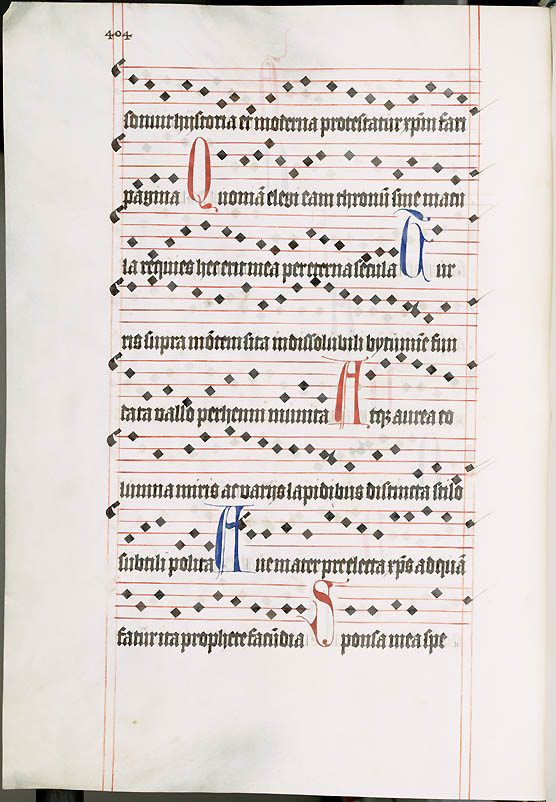 404
sonuit historia et moderna protestatur xp̄m fari
pagina Quoniā elegi eam thronū sine macu
la requies hec erit mea per eterna secula Tur
ris supra mōtem sita indissolubili bytumīe fun
data vallo perhenni munita Atqꝫ aurea co
lumna miris ac varijs lapidibus distincta stilo
subtili polita Aue mater preelecta xp̄s ad quā
fatur ita prophete facūdia Sponsa mea spe